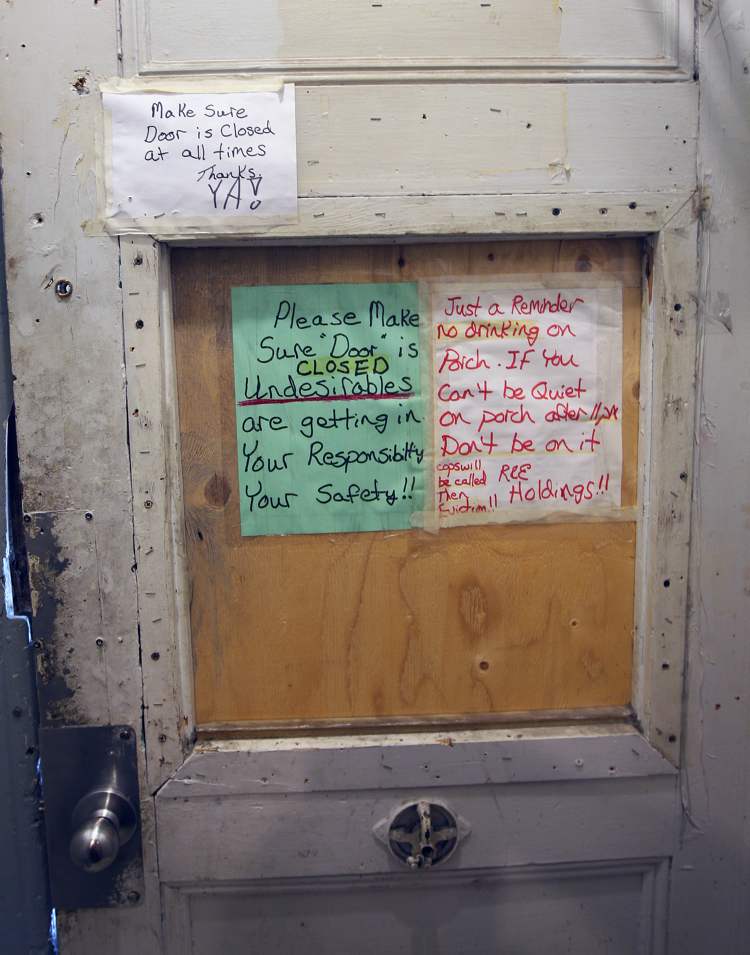 Make Sure
Door is Closed
at all times
Thanks.
YA!
Please Make
Sure "Door" is
CLOSED
Undesirables
are getting in.
Your Responsibilty
Your Safety!!
Just a Reminder
no drinking on
Porch. If You
Can't be Quiet
on porch after 11pm
Don't be on it
cops will
be called
Then
Evictim!!
RCE
Holdings!!